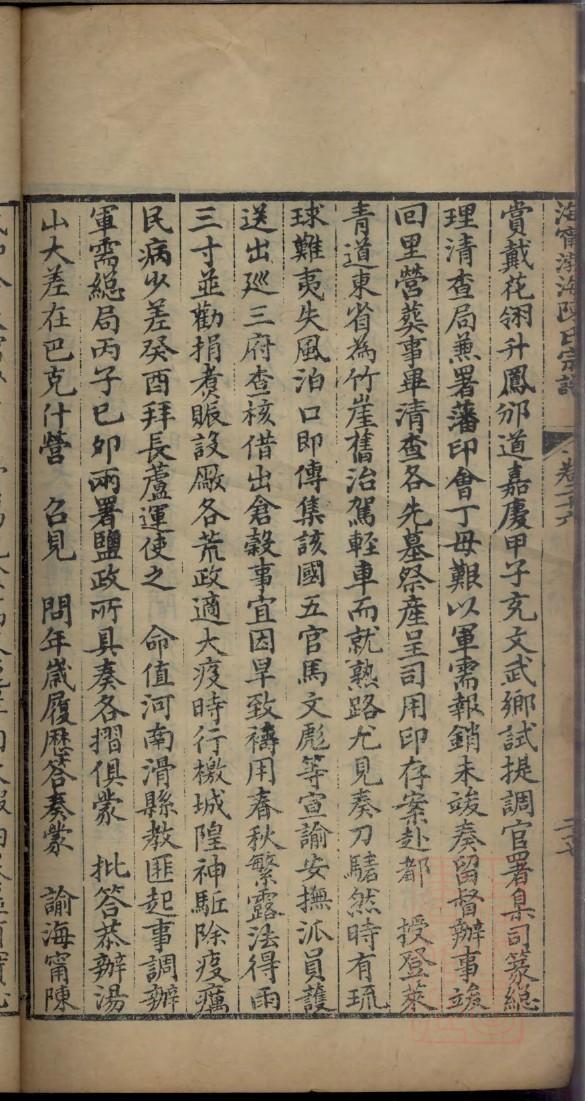 海甯渤海陳氏宗譜
卷二十六
賞戴花翎升鳳邠道嘉慶甲子充文武鄉試提調官署臬司篆總
理清查局兼署藩印會丁母艱以軍需報銷未竣奏留督辦事竣
回里營葬事畢清查各先墓祭產呈司用印存案赴都　授登萊
青道東省為竹崖舊治駕輕車而就熟路尤見奏刀騞然時有琉
球難夷失風泊口即傳集該國五官馬文彪等宣諭安撫派員護
送出廵三府查核借出倉穀事宜因旱致禱用春秋繁露法得雨
三寸並勸捐煮賑設厰各荒政適大疫時行檄城隍神駈除疫癘
民病少差癸酉拜長蘆運使之　命值河南滑縣教匪起事調辦
軍需總局丙子己卯兩署鹽政所具奏各摺俱蒙　批答恭辦湯
山大差在巴克什營　召見　問年歲履歷答奏蒙　諭海甯陳